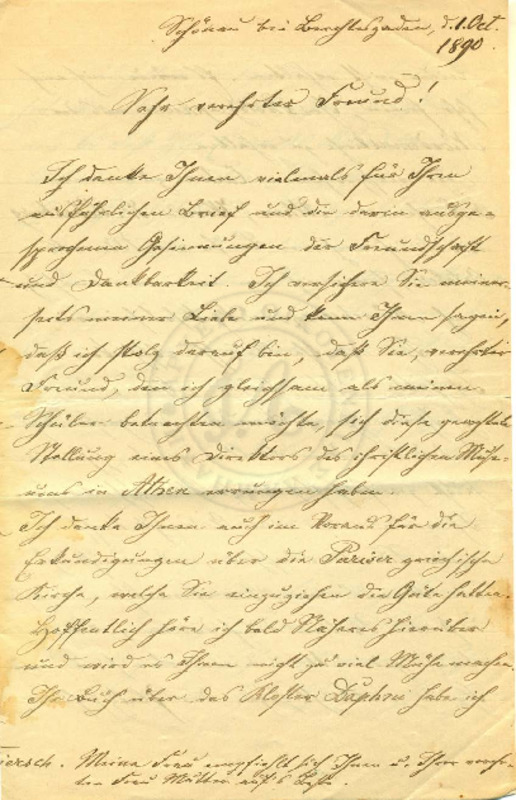 Schönau bei Berchtesgaden, d. 1. Oct.
1890.
Sehr verehrter Freund!
Ich danke Ihnen vielmals für Ihren
ausführlichen Brief und die darin ausge-
sprochenen Gesinnungen der Freundschaft
und Dankbarkeit. Ich versichere Sie meiner-
seits meiner Liebe und kann Ihnen sagen,
daß ich stolz darauf bin, daß Sie, verehrter
Freund, den ich gleichsam als meinen
Schüler betrachten möchte, sich diese geachtete
Stellung eines Direktors des christlichen Muse-
ums in Athen errungen haben.
Ich danke Ihnen auch im Voraus für die
Erkundigungen über die Pariser griechische
Kirche, welche Sie einzuziehen die Güte hatten.
Hoffentlich höre ich bald Näheres hierüber
und wird es Ihnen nicht zu viel Mühe machen.
Ihr Buch über das Kloster Daphni habe ich
Meine Frau empfiehlt sich Ihnen u. Ihrer verehr-
ten Frau Mutter auf's Beste.